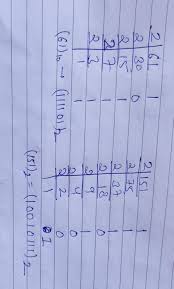 2 | 61
2 | 30 1
2 | 15 0
2 | 7 1
2 | 3 1
1 1
(61)10 → (111101)2
2 | 151
2 | 75 1
2 | 37 1
2 | 18 1
2 | 9 0
2 | 4 1
2 | 2 0
1 0
(151)2 = (10010111)2